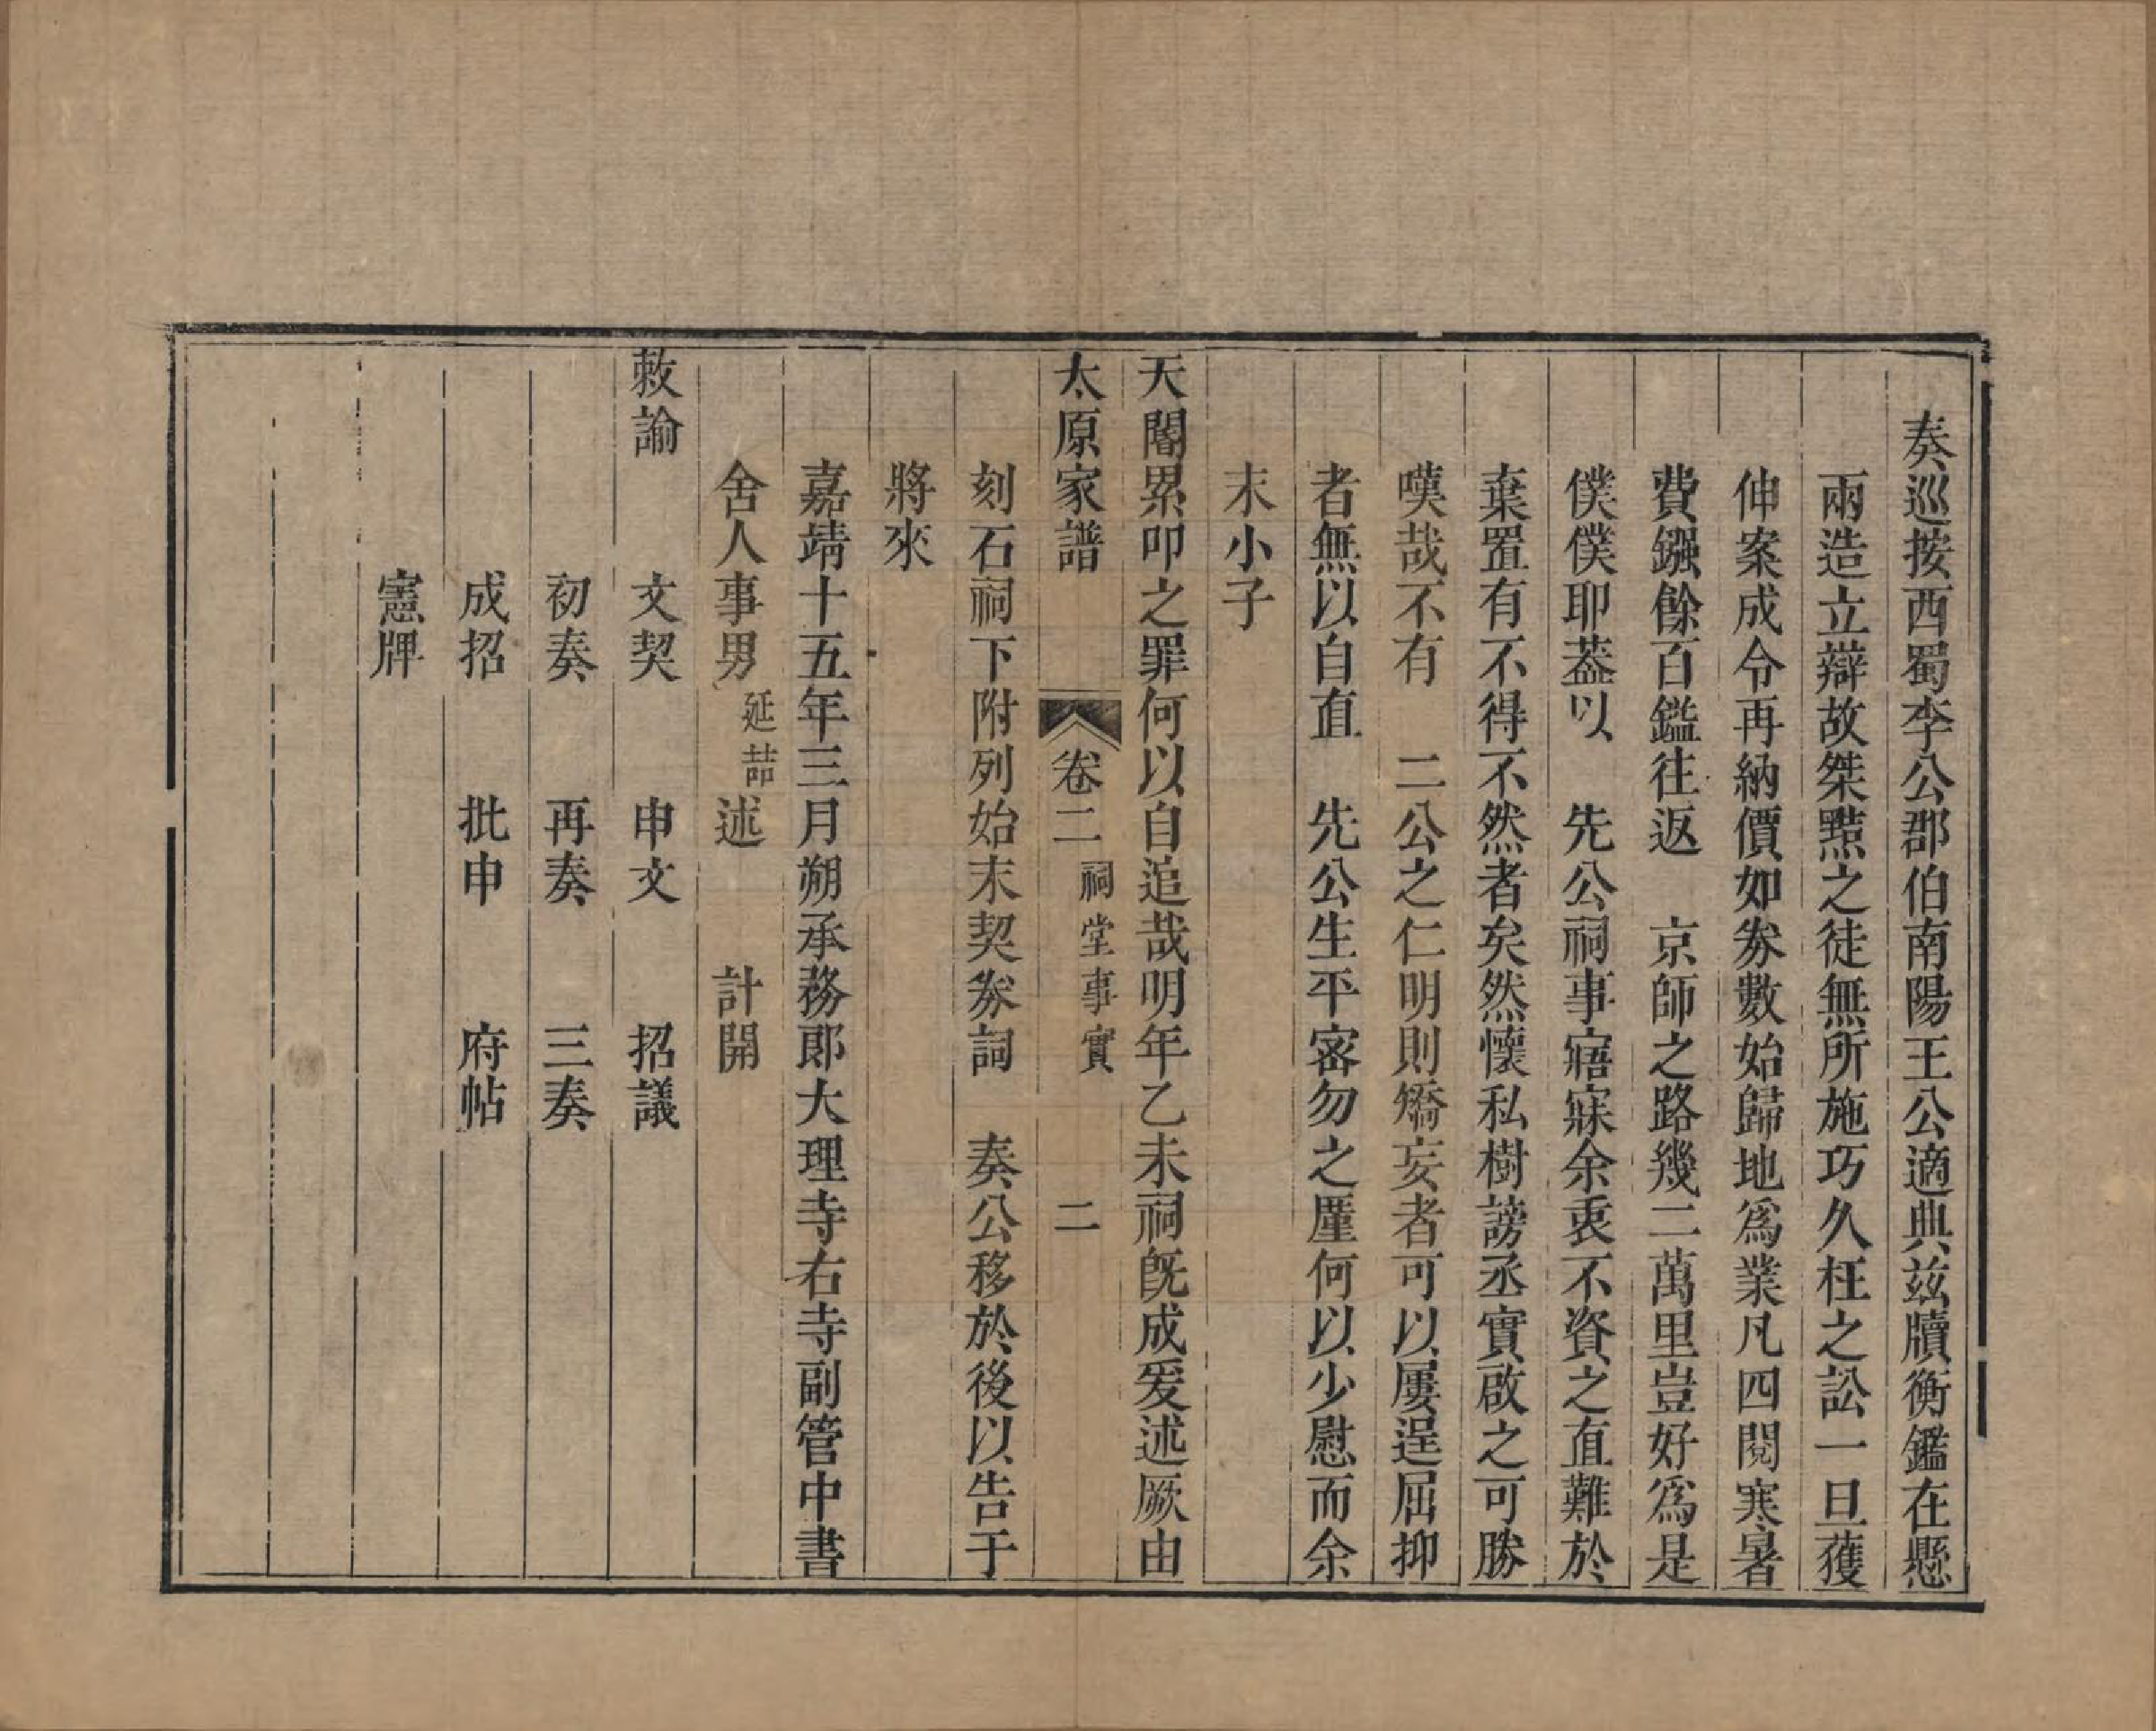 奏巡按西蜀李公郡伯南陽王公適典茲牘衡鑑在懸
兩造立辯故桀黠之徒無所施巧久枉之訟一旦獲
伸案成令再納價如劵數始歸地爲業凡四閱寒暑
費鏹餘百鑑往返　京師之路幾二萬里豈好爲是
僕僕耶葢以　先公祠事寤寐余衷不資之直難於
棄置有不得不然者矣然懷私樹謗丞實啟之可勝
嘆哉不有　二公之仁明則矯妄者可以屢逞屈抑
者無以自直　先公生平宻勿之廑何以少慰而余
末小子
天閽累叩之罪何以自追哉明年乙未祠旣成爰述厥由
太原家譜　卷二　祠堂事實　二
刻石祠下附列始末契劵詞　奏公移於後以告于
將來
嘉靖十五年三月朔承務郎大理寺右寺副管中書
舍人事男延喆述　計開
敕諭　文契　申文　招議
初奏　再奏　三奏
成招　批申　府帖
憲牌